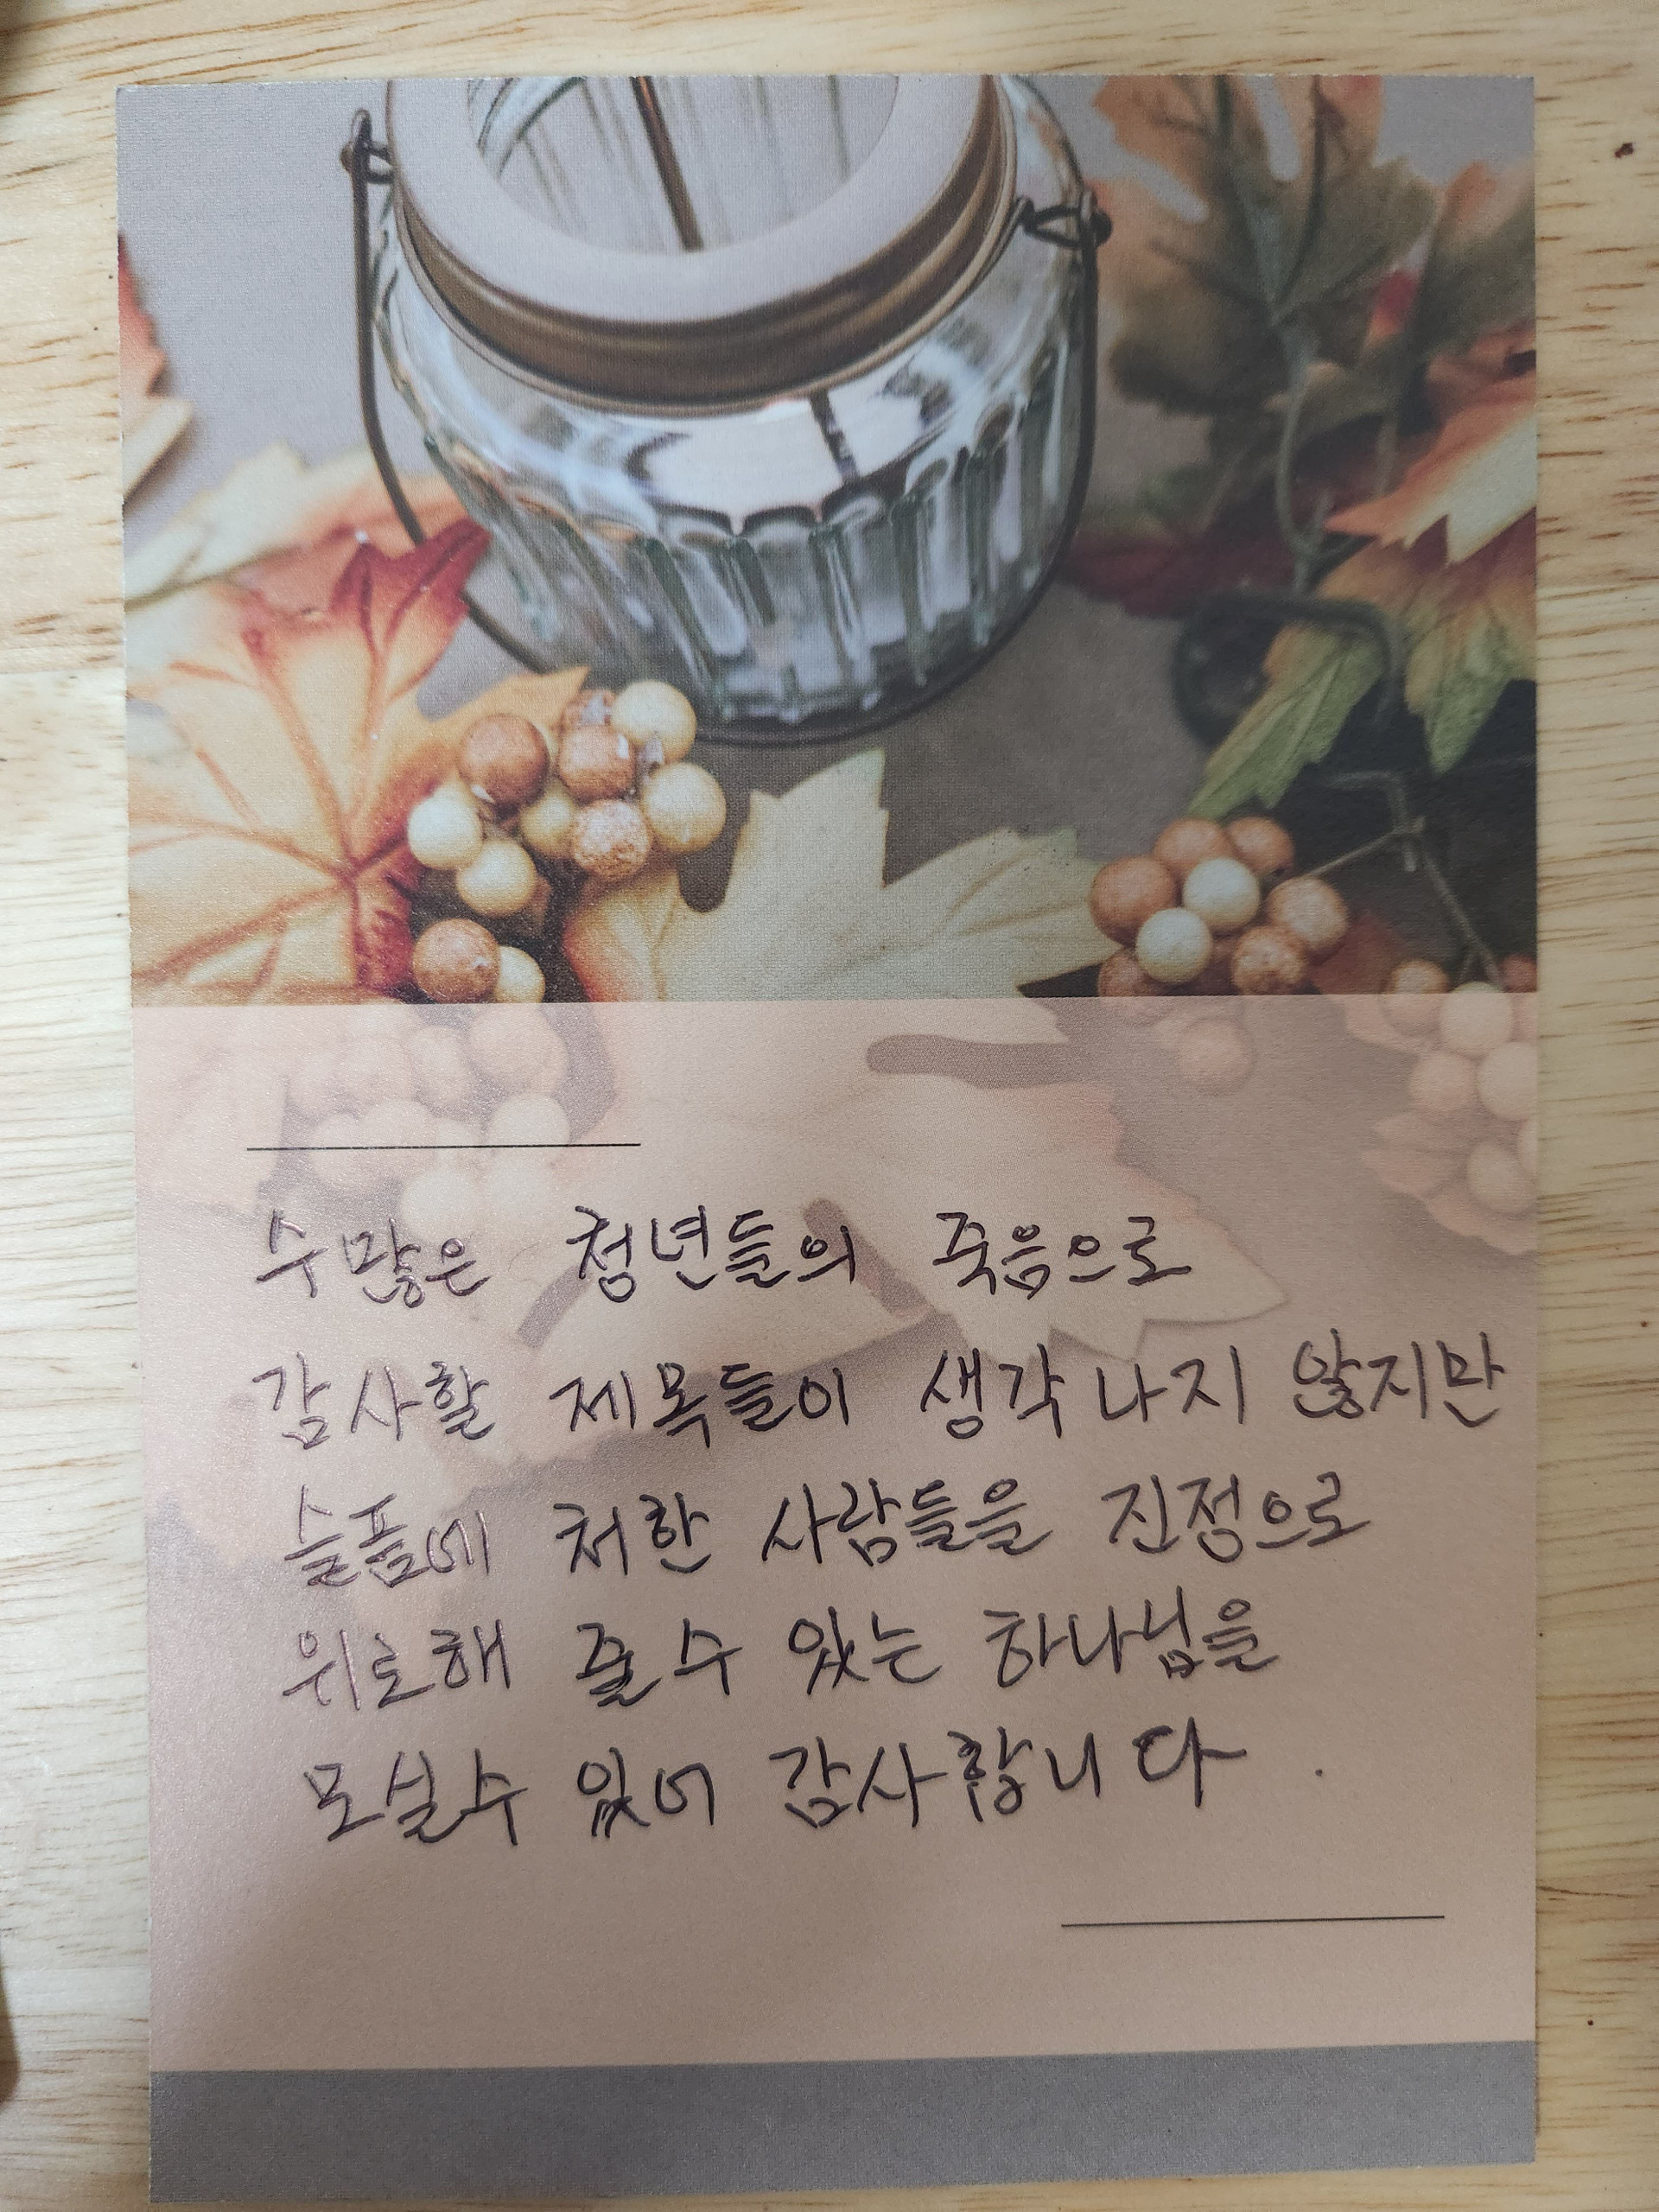 수많은 청년들의 죽음으로
감사할 제목들이 생각나지 않지만
슬픔에 처한 사람들을 진정으로
위로해 줄 수 있는 하나님을
모실수 있어 감사합니다.